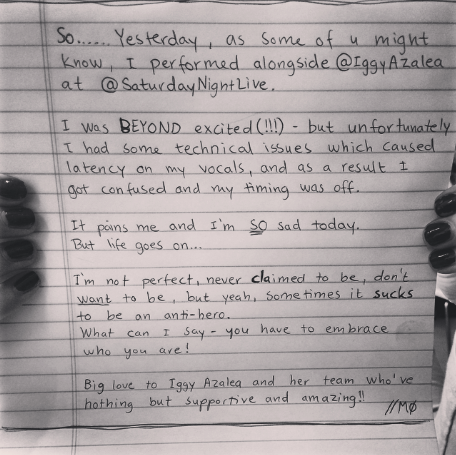 So...... Yesterday, as some of u might
know, I performed alongside @IggyAzalea
at @SaturdayNightLive.
I was BEYOND excited(!!!) - but unfortunately
I had some technical issues which caused
latency on my vocals, and as a result I
got confused and my timing was off.
It pains me and I'm SO sad today.
But life goes on...
I'm not perfect, never claimed to be, don't
want to be, but yeah, sometimes it sucks
to be an anti-hero.
What can I say - you have to embrace
who you are!
Big love to Iggy Azalea and her team who've
nothing but supportive and amazing!!
//MØ